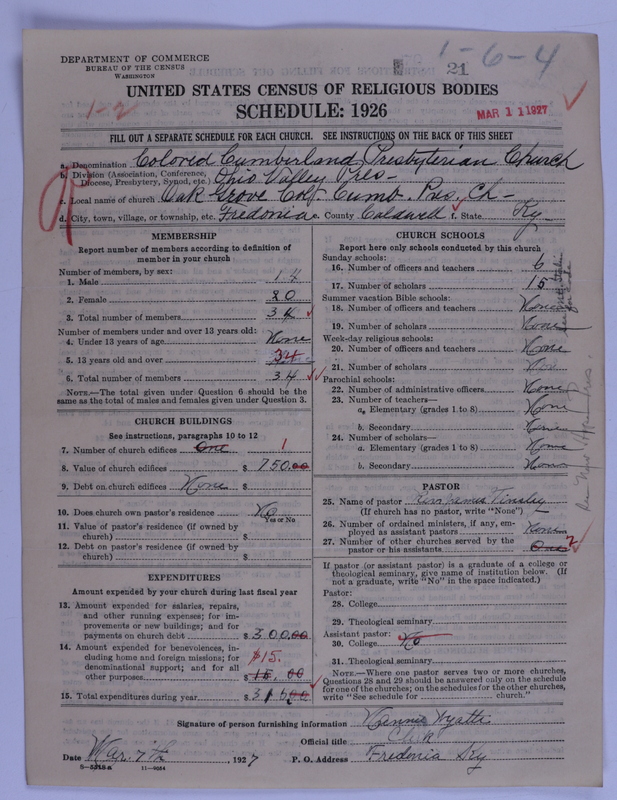 DEPARTMENT OF COMMERCE
BUREAU OF THE CENSUS
WASHINGTON
1-6-4
21
1-2
UNITED STATES CENSUS OF RELIGIOUS BODIES
SCHEDULE: 1926
MAR 11 1927
FILL OUT A SEPARATE SCHEDULE FOR EACH CHURCH. SEE INSTRUCTIONS ON THE BACK OF THIS SHEET
a. Denomination Colored Cumberland Presbyterian Church
b. Division (Association, Conference, Diocese, Presbytery, Synod, etc.) Ohio Valley Pres-
c. Local name of church Oak Grove Col. Cumb. Pres. Ch-
d. City, town, village, or township, etc. Fredonia e. County Caldwell f. State Ky.
MEMBERSHIP
Report number of members according to definition of
member in your church
Number of members, by sex:
1. Male 14
2. Female 20
3. Total number of members 34
Number of members under and over 13 years old:
4. Under 13 years of age None
5. 13 years old and over 34
6. Total number of members 34
NOTE.—The total given under Question 6 should be the
same as the total of males and females given under Question 3.
CHURCH BUILDINGS
See instructions, paragraphs 10 to 12
7. Number of church edifices One 1
8. Value of church edifices $ 750.00
9. Debt on church edifices None $
10. Does church own pastor's residence? No
Yes or No
11. Value of pastor's residence (if owned by
church) $
12. Debt on pastor's residence (if owned by
church) $
EXPENDITURES
Amount expended by your church during last fiscal year
13. Amount expended for salaries, repairs,
and other running expenses; for im-
provements or new buildings; and for
payments on church debt $ 300.00
14. Amount expended for benevolences, in-
cluding home and foreign missions; for
denominational support; and for all
other purposes $15. $
15. Total expenditures during year $ 315.00
CHURCH SCHOOLS
Report here only schools conducted by this church
Sunday schools:
16. Number of officers and teachers 6
17. Number of scholars 15
Summer vacation Bible schools:
18. Number of officers and teachers None
19. Number of scholars None
Week-day religious schools:
20. Number of officers and teachers None
21. Number of scholars None
Parochial schools:
22. Number of administrative officers None
23. Number of teachers—
a. Elementary (grades 1 to 8) None
b. Secondary None
24. Number of scholars—
a. Elementary (grades 1 to 8) None
b. Secondary None
PASTOR
25. Name of pastor Tinsley
(If church has no pastor, write "None")
26. Number of ordained ministers, if any, em-
ployed as assistant pastors None
27. Number of other churches served by the
pastor or his assistants One 2
If pastor (or assistant pastor) is a graduate of a college or
theological seminary, give name of institution below. (If
not a graduate, write "No" in the space indicated.)
Pastor:
28. College
29. Theological seminary
Assistant pastor:
30. College No
31. Theological seminary
NOTE.—Where one pastor serves two or more churches,
Questions 28 and 29 should be answered only on the schedule
for one of the churches; on the schedules for the other churches,
write "See schedule for church."
Signature of person furnishing information Wyatt
Official title Clerk
Date Mar. 7th, 1927 P. O. Address Fredonia Ky
8-5318a 11-9054